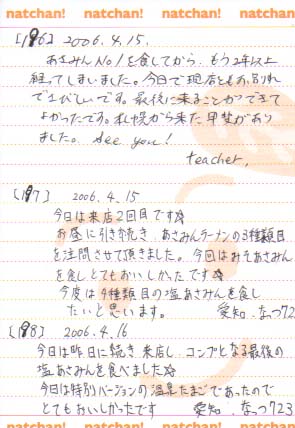 natchan! natchan! natchan! natchan!
[196] 2006.4.15.
あさみんNo1を食してから、もう2年以上
経ってしまいました。今日で現店ともお別れ
でさびしいです。最後に来ることができて
よかったです。札幌から来た甲斐があり
ました。See you!
teacher.
[197] 2006.4.15
今日は来店2回目です☆
お昼に引き続き、あさみんラーメンの3種類目
を注文させて頂きました。今回はみそあさみん
を食しとてもおいしかったです☆
今度は4種類目の塩あさみんを食し
たいと思います。 愛知.なつ72
[198] 2006.4.16
今日は昨日に続き来店し、コンプとなる最後の
塩あさみんを食べました☆
今日は特別バージョンの温泉たまごであったので
とてもおいしかったです 愛知.なつ723
natchan! natchan! natchan! natchan!